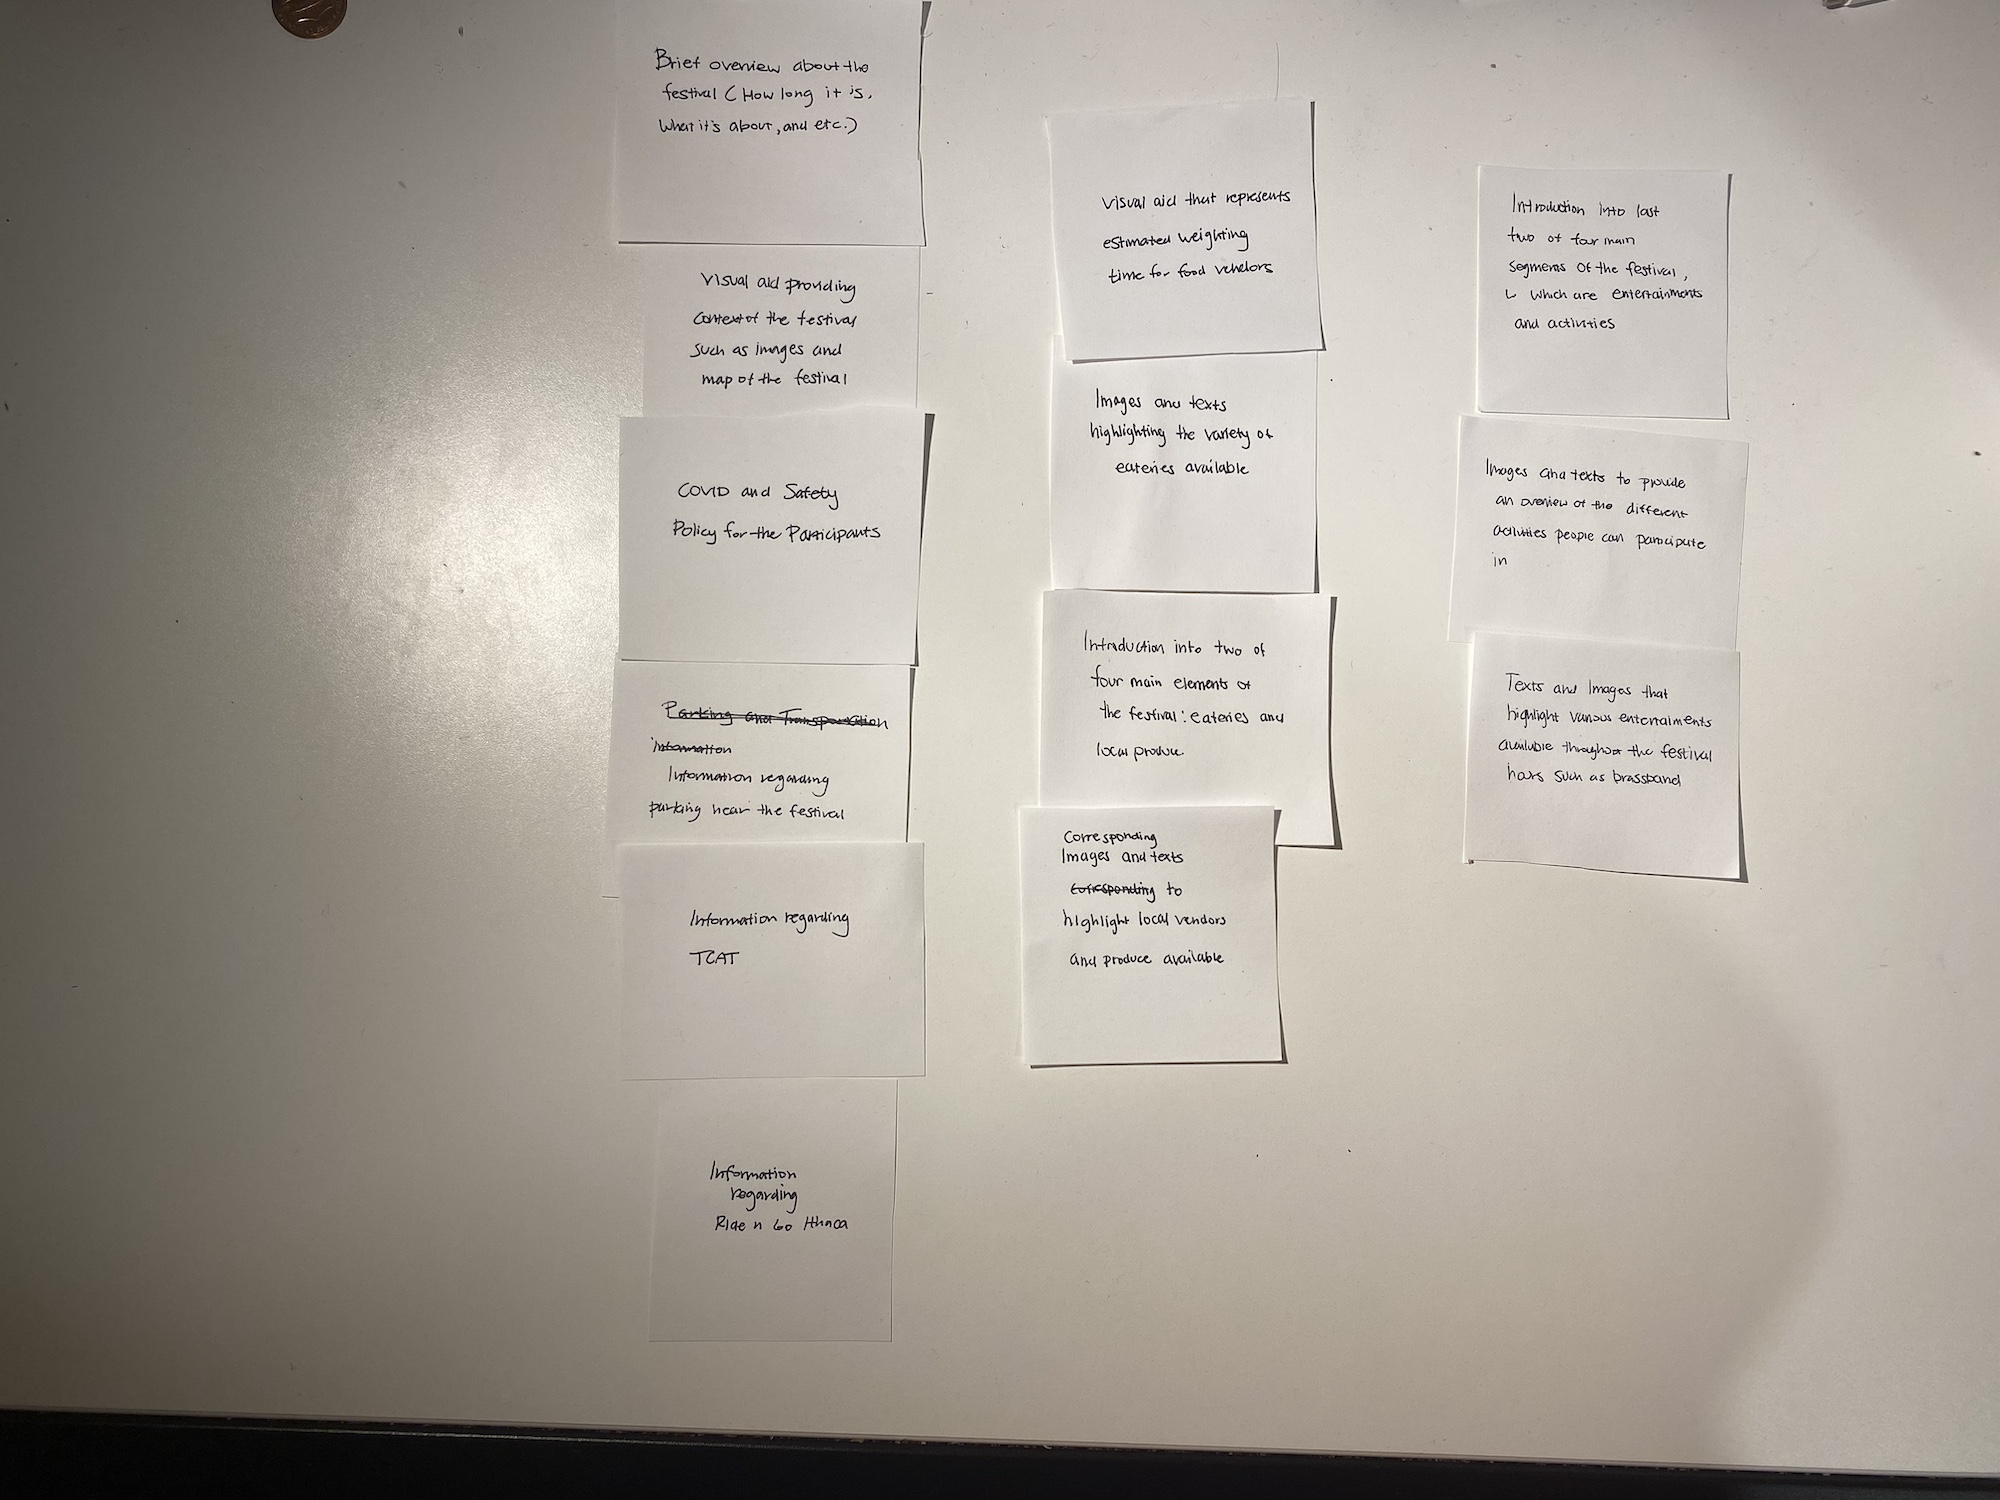 Brief overview about the
festival (How long it is,
What it's about, and etc.)
Visual aid providing
context of the festival
such as images and
map of the festival
COVID and Safety
Policy for the Participants
Parking and Transportation
information
Information regarding
parking near the festival
Information regarding
TCAT
Information
regarding
Ride n Go Ithaca
Visual aid that represents
estimated weighting
time for food vendors
Images and texts
highlighting the variety of
eateries available
Introduction into two of
four main elements of
the festival: eateries and
local produce
Corresponding
Images and texts
corresponding to
highlight local vendors
and produce available
Introduction into last
two of four main
segments of the festival,
↳ which are entertainments
and activities
Images and texts to provide
an overview of the different
activities people can participate
in
Texts and Images that
highlight various entertaiments
available throughout the festival
hours such as brassband